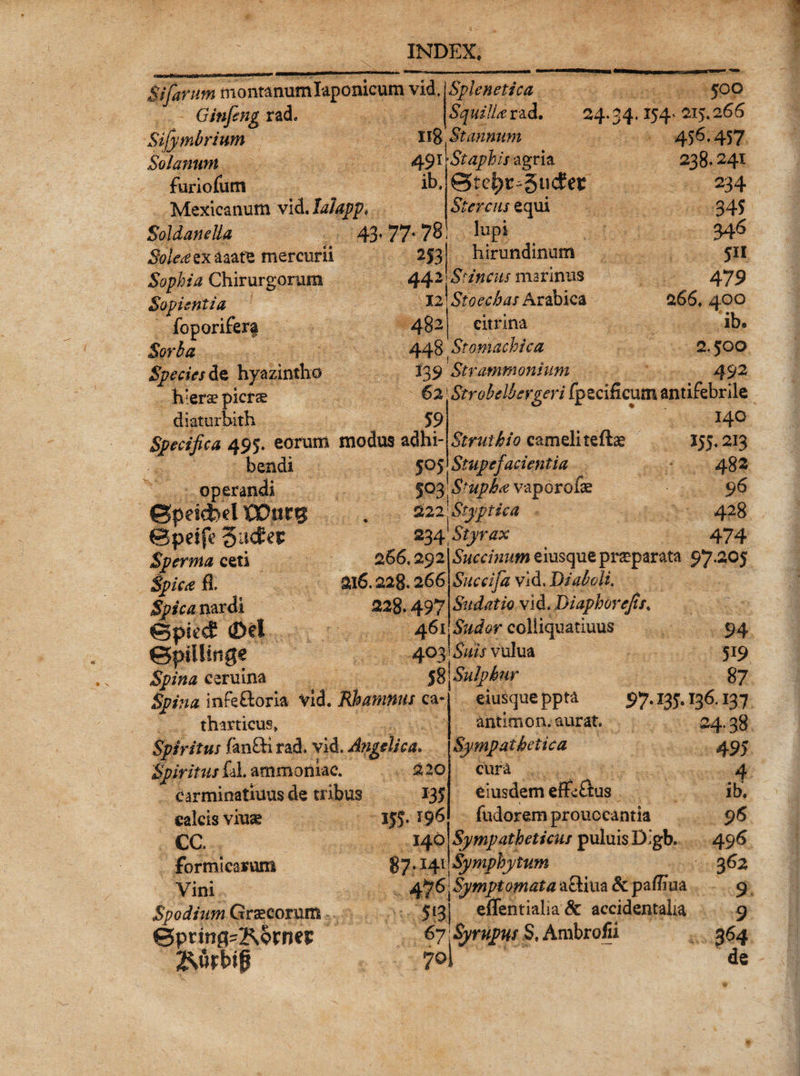 INDEX.
Siſarum montanumIaponicum vid.
Ginſeng rad.
Siſymbrium 118
Solanum 491
furioſum ib.
Mexicanum vid. Ialapp.
Soldanella 43. 77. 78
Soleæ ex āaatē mercurii 253
Sophia Chirurgorum 442
Sopientia 12
ſoporifera 482
Sorba 448
Species de hyazintho 139
hieræ picræ 62
diaturbith 59
Specifica 495. eorum modus adhi-
bendi 505
operandi 503
Speichel Wurtz . 222
Speiſe Zucker 234
Sperma ceti 266. 292
Spicæ fl. 216. 228. 266
Spica nardi 228. 497
Spieck Oel 461
Spillinge 403
Spina ceruina 58
Spina infectoria vid. Rhamnus ca-
tharticus,
Spiritus ſancti rad. vid. Angelica.
Spiritus ſal. ammoniac. 220
carminatiuus de tribus 135
calcis viuæ 155. 196
CC. 140
formicarum 87. 141
Vini 476
Spodium Græcorum 513
Spring-Körner 67
Kürbiß 70
Splenetica 500
Squillæ rad. 24. 34. 154. 215. 266
Stannum 456. 457
Staphis agria 238. 241
Stehr-Zucker 234
Stercus equi 345
lupi 346
hirundinum 511
Stincus marinus 479
Stoechas Arabica 266. 400
citrina ib.
Stomachica 2. 500
Strammonium 492
Strobelbergeri ſpecificum antifebrile
140
Struthio cameli teſtæ 155. 213
Stupefacientia 482
Stuphæ vaporoſæ 96
Styptica 428
Styrax 474
Succinum eiusque præparata 97. 205
Succiſa vid. Diaboli.
Sudatio vid. Diaphoreſis.
Sudor colliquatiuus 94
Suis vulua 519
Sulphur 87
eiusque ppta 97. 135. 136. 137
antimon. aurat. 24. 38
Sympathetica 495
cura 4
eiusdem effectus ib.
ſudorem prouocantia 96
Sympatheticus puluis Digb. 496
Symphytum 362
Symptomata actiua & paſſiua 9
eſſentialia & accidentalia 9
Syrupus S. Ambroſii 364
de